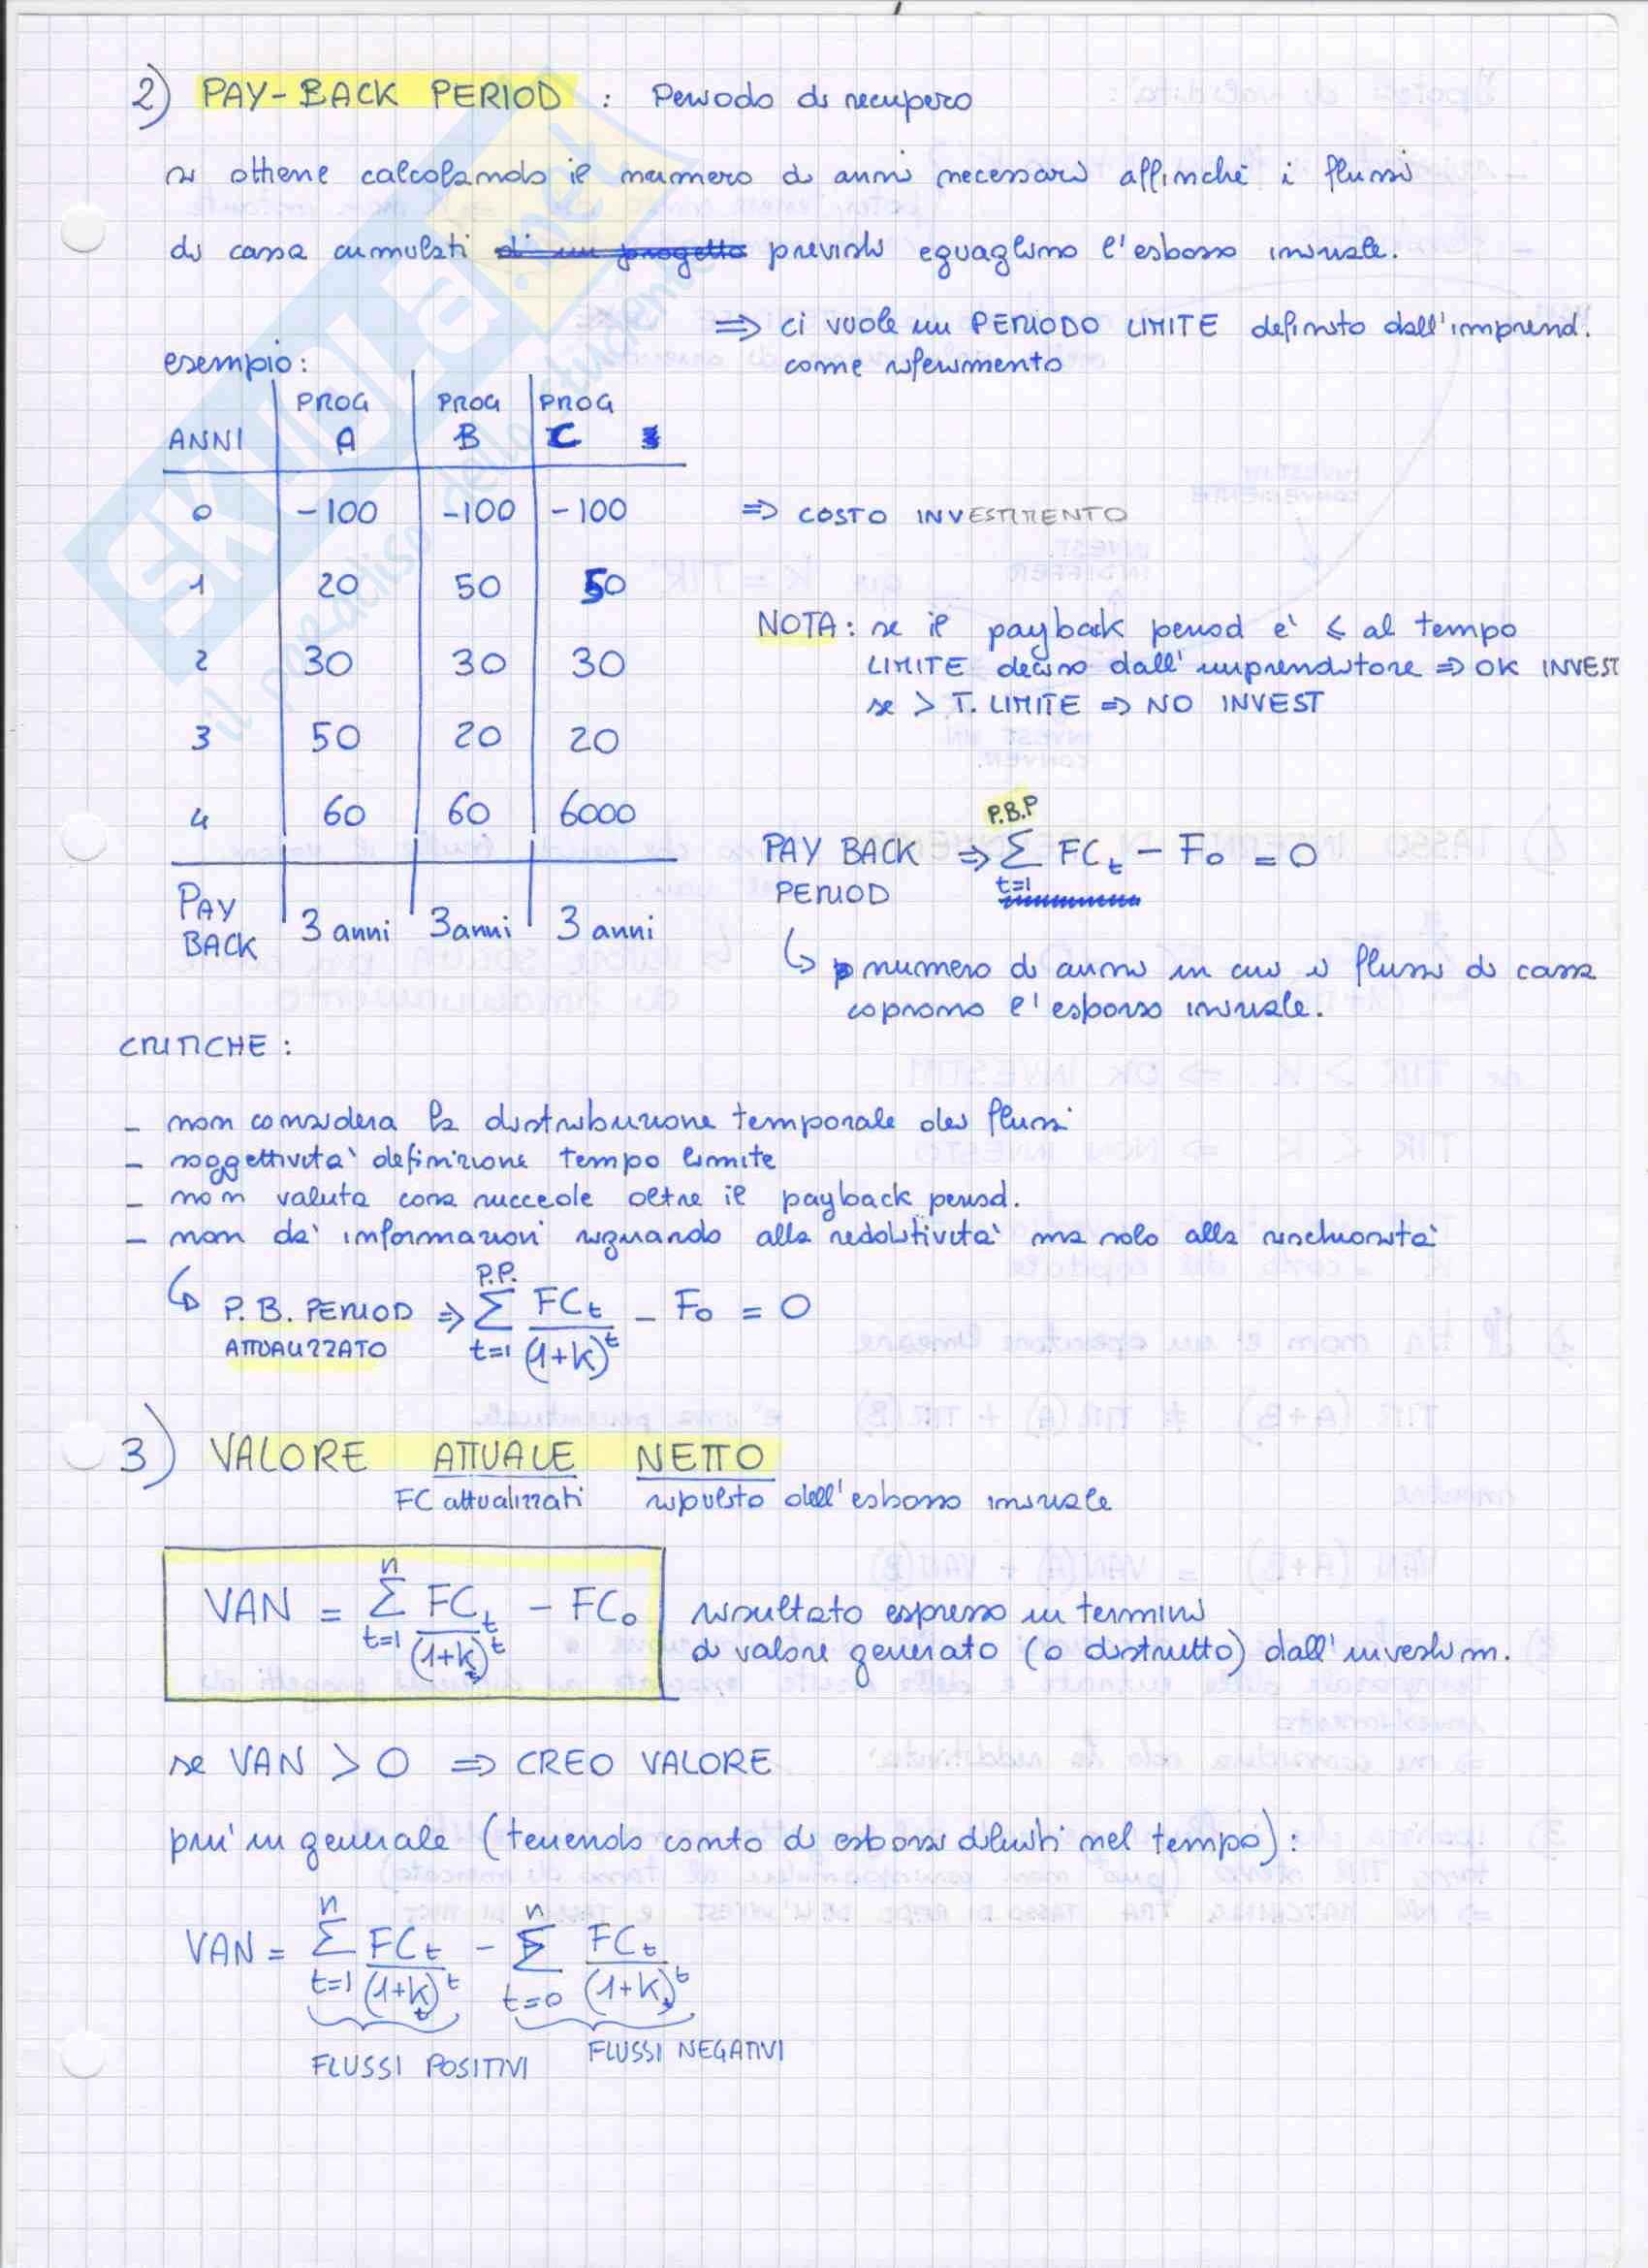 2) PAY-BACK PERIOD : Periodo di recupero
si ottiene calcolando il numero di anni necessari affinché i flussi
di cassa cumulati di un progetto previsti eguaglino l'esborso iniziale.
⇒ ci vuole un PERIODO LIMITE definito dall'imprend.
come riferimento
esempio:
ANNI | PROG A | PROG B | PROG C
0 | -100 | -100 | -100 ⇒ COSTO INVESTIMENTO
1 | 20 | 50 | 50
2 | 30 | 30 | 30
3 | 50 | 20 | 20
4 | 60 | 60 | 6000
PAY BACK | 3 anni | 3 anni | 3 anni
NOTA: se il payback period è ≤ al tempo
LIMITE deciso dall'imprenditore ⇒ OK INVEST
se > T. LIMITE ⇒ NO INVEST
PAY BACK PERIOD ⇒ P.B.P Σ t=1 FCt - F0 = 0
↳ numero di anni in cui i flussi di cassa
coprono l'esborso iniziale.
CRITICHE:
- non considera la distribuzione temporale dei flussi
- soggettività definizione tempo limite
- non valuta cosa succede oltre il payback period.
- non dà informazioni riguardo alla redditività ma solo alla rischiosità
↳ P.B. PERIOD ATTUALIZZATO ⇒ P.P. Σ t=1 FCt / (1+k)^t - F0 = 0
3) VALORE ATTUALE NETTO
FC attualizzati ripulito dell'esborso iniziale
VAN = n Σ t=1 FCt / (1+kt)^t - FC0
risultato espresso in termini
di valore generato (o distrutto) dall'investim.
se VAN > 0 ⇒ CREO VALORE
più in generale (tenendo conto di esborsi diluiti nel tempo):
VAN = n Σ t=1 FCt / (1+kt)^t - n Σ t=0 FCt / (1+kt)^t
FLUSSI POSITIVI FLUSSI NEGATIVI
SKUOLA.net
il paradiso dello studente